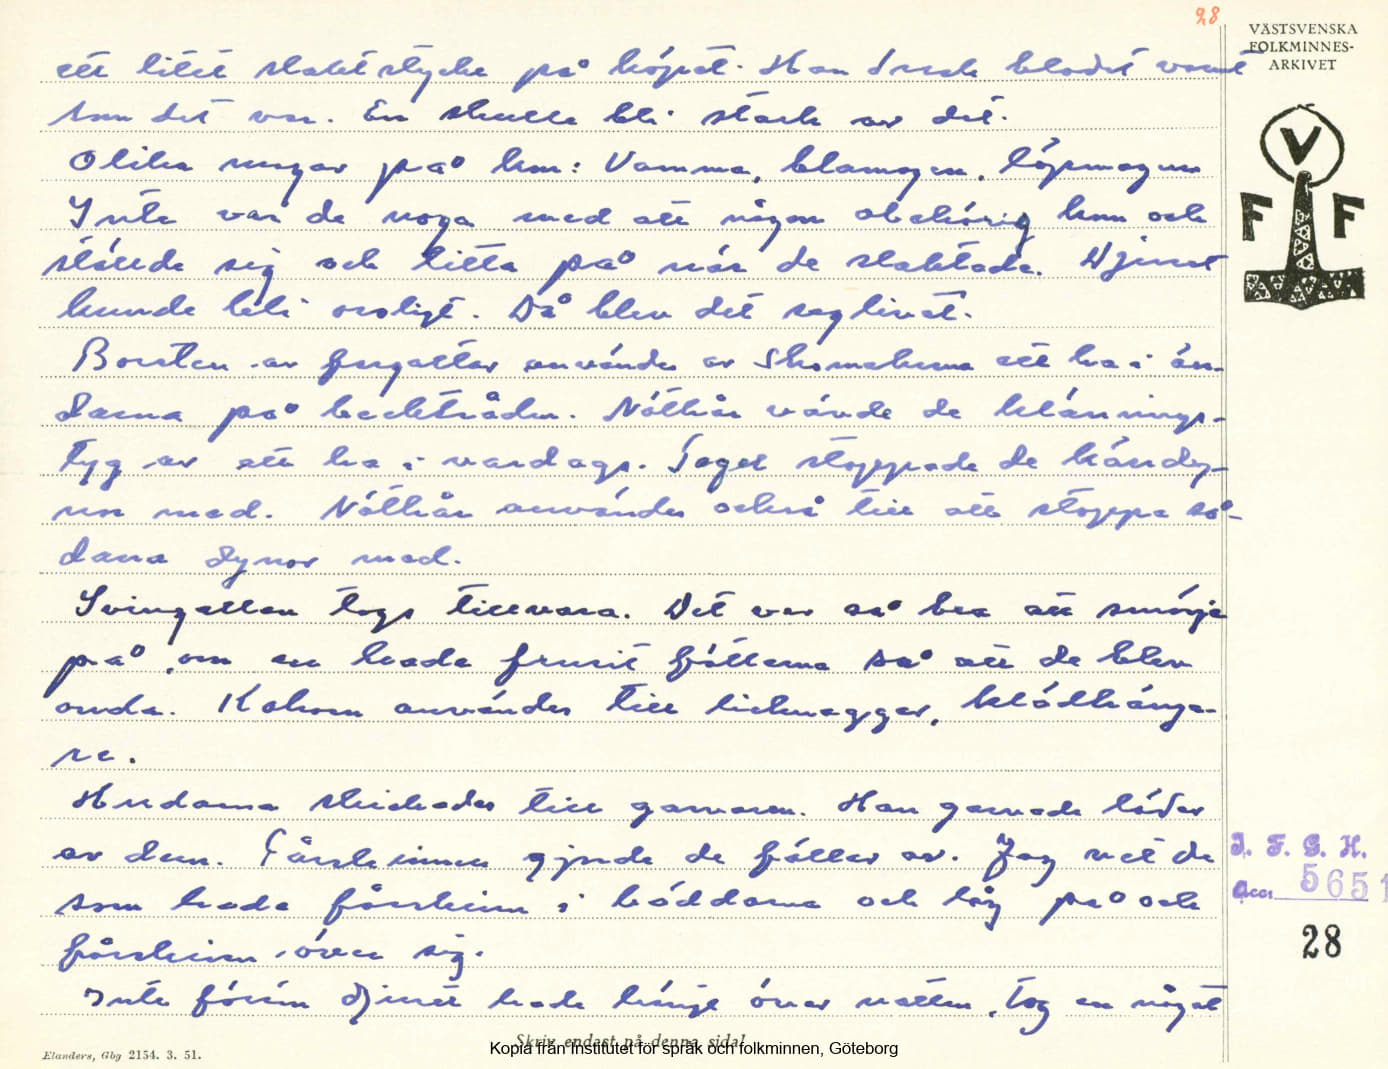 28
VÄSTSVENSKA
FOLKMINNES-
ARKIVET
V
F F
ett litet slaktstycke på köpet. Han drack blodet varmt
som det var. En skulle bli stark av det.
Olika magar på kon: Vamma, blamagen, löpmagen
Inte var de noga med att någon obehörig kom och
ställde sig och titta på när de slaktade. Djuret
kunde bli oroligt. Då blev det seglivat.
Borsten av fargaltar användes av Skomakarna att ha i än-
darna på becktråden. Nöthår vävde de klännings-
tyg av att ha i vardags. Tagel stoppade de kärdy-
nor med. Nöthår användes också till att stoppa så-
dana dynor med.
Svingallan togs tillvara. Det var så bra att smörja
på, om en hade frusit fötterna så att de blev
onda. Kohorn användes till lieknaggar, klädhänga-
re.
Hudarna skickades till garvaren. Han garvade läder
av dem. Fårskinnen gjorde de fällar av. Jag vet de
som hade fårskinn i bäddarna och låg på och
fårskinn över sig.
Inte förrän djuret hade hängt över natten, tog en något
I. F. G. H.
Acc. 5651
28
Skriv endast på denna sida!
Kopia från Institutet för språk och folkminnen, Göteborg
Elanders, Gbg 2154. 3. 51.